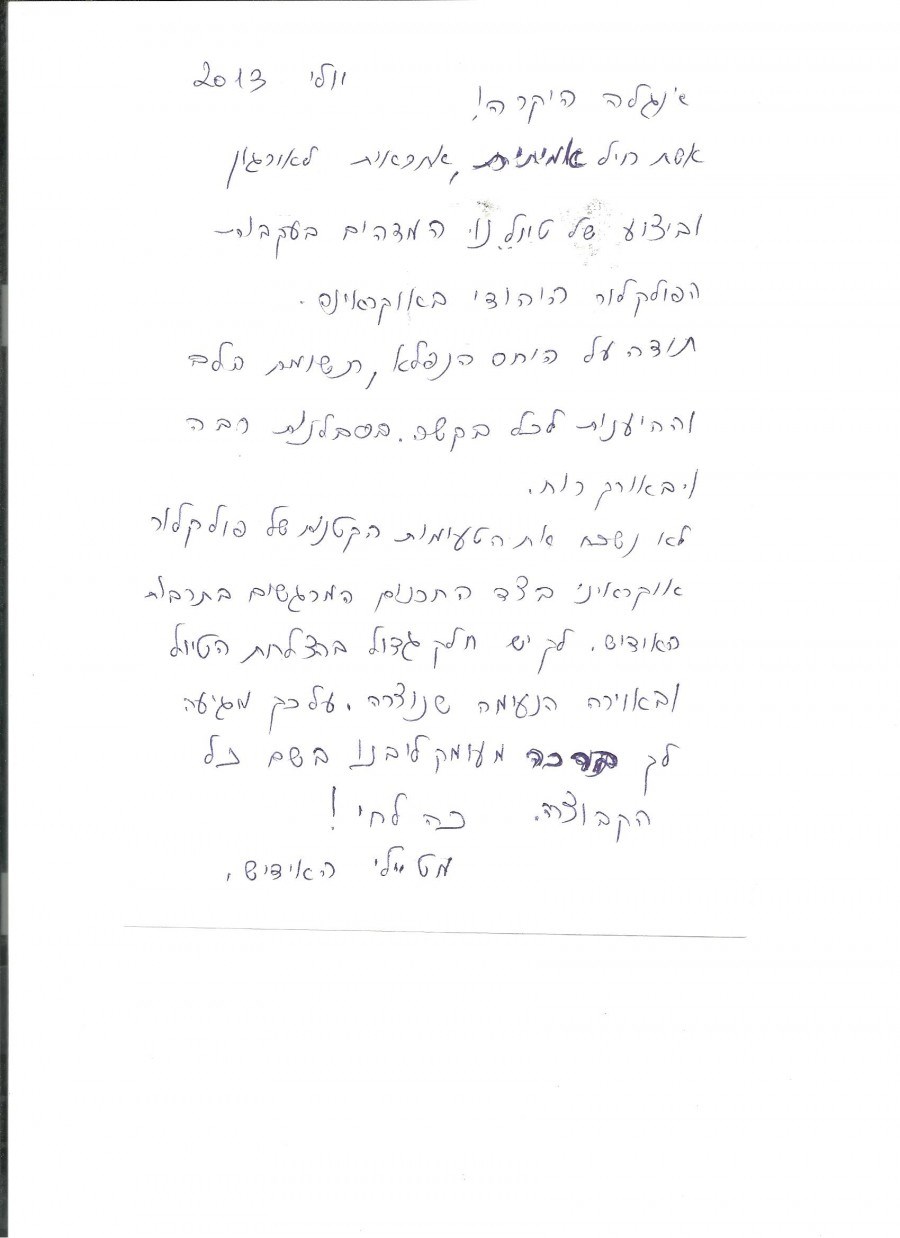 יולי 2013
ז'נגלה היקרה!
אשת חיל אמיתית, אחראית לארגון
וביצוע של טיולנו המדהים בעקבות
הפולקלור היהודי באוקראינה.
תודה על היחס הנפלא, תשומת הלב
וההיענות לכל בקשה. בסבלנות רבה
ובאורך רוח.
לא נשכח את הטעימות הקטנות של פולקלור
אוקראיני בצד התכנים המרגשים בתרבות
האידיש. לך יש חלק גדול בהצלחת הטיול
ובאוירה הנעימה שנוצרה. על כך מגיעה
לך ברכה מעומק ליבנו בשם כל
הקבוצה. כה לחי!
מטיילי האידיש.